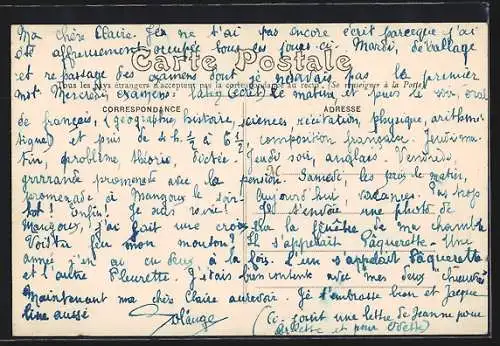 Ma chère Claire. Je ne t'ai pas encore écrit parceque j'ai
été affreusement occupée tous ces jours-ci. Mardi, déballage
Carte Postale
et repassage des examens dont je ne savais pas la première
Tous les pays étrangers n'acceptent pas la correspondance au recto. (Se renseigner à la Poste)
mot. Mercredi examens. (écrit) le matin et puis le soir, oral
CORRESPONDANCE
ADRESSE
de français, (géographie, histoire, sciences récitation, physique, arithmé-
tique) et puis de 4 h. ½ à 6 ½ composition française. Jeudi ma-
tin, problème, théorie, dictée. Jeudi soir, anglais. Vendredi,
M
grrrrande promenade avec la pension. Samedi, les prix le matin,
promenade à Mangoux le soir. Aujourd'hui, vacances. Pas trop
tôt! Enfin! Je suis ravie! Je t'envoie une photo de
Mangoux, j'ai fait une croix sur la fenêtre de ma chambre
Vois-tu mon mouton? Il s'appelait Pâquerette. Une
année j'en ai eu deux à la fois. L'un s'appelait Pâquerette
et l'autre Fleurette. J'étais bien contente avec mes deux "chieuvres"
Maintenant ma chère Claire aurevoir. Je t'embrasse bien et Jacque-
line aussi Solange
(Ci-joint une lettre de Jeanne pour
et pour Odette)